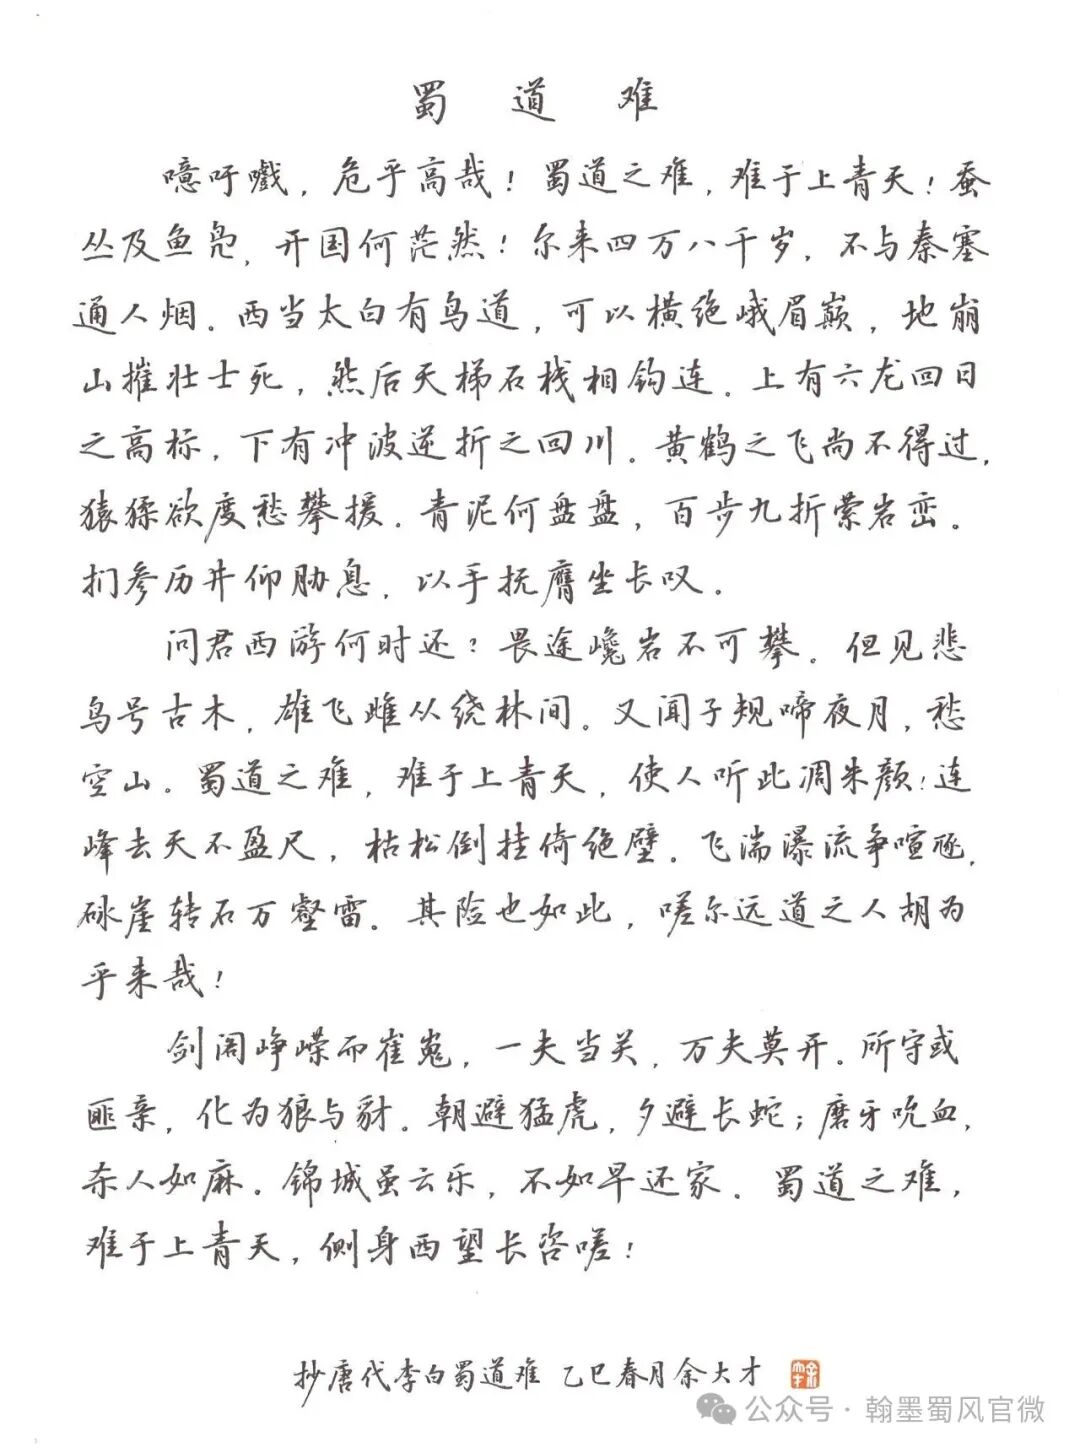 蜀道难
噫吁嚱，危乎高哉！蜀道之难，难于上青天！蚕
丛及鱼凫，开国何茫然！尔来四万八千岁，不与秦塞
通人烟。西当太白有鸟道，可以横绝峨眉巅，地崩
山摧壮士死，然后天梯石栈相钩连。上有六龙回日
之高标，下有冲波逆折之回川。黄鹤之飞尚不得过，
猿猱欲度愁攀援。青泥何盘盘，百步九折萦岩峦。
扪参历井仰胁息，以手抚膺坐长叹。
问君西游何时还？畏途巉岩不可攀。但见悲
鸟号古木，雄飞雌从绕林间。又闻子规啼夜月，愁
空山。蜀道之难，难于上青天，使人听此凋朱颜！连
峰去天不盈尺，枯松倒挂倚绝壁。飞湍瀑流争喧豗，
砯崖转石万壑雷。其险也如此，嗟尔远道之人胡为
乎来哉！
剑阁峥嵘而崔嵬，一夫当关，万夫莫开。所守或
匪亲，化为狼与豺。朝避猛虎，夕避长蛇；磨牙吮血，
杀人如麻。锦城虽云乐，不如早还家。蜀道之难，
难于上青天，侧身西望长咨嗟！
抄唐代李白蜀道难 乙巳春月余大才
公众号·翰墨蜀风官微